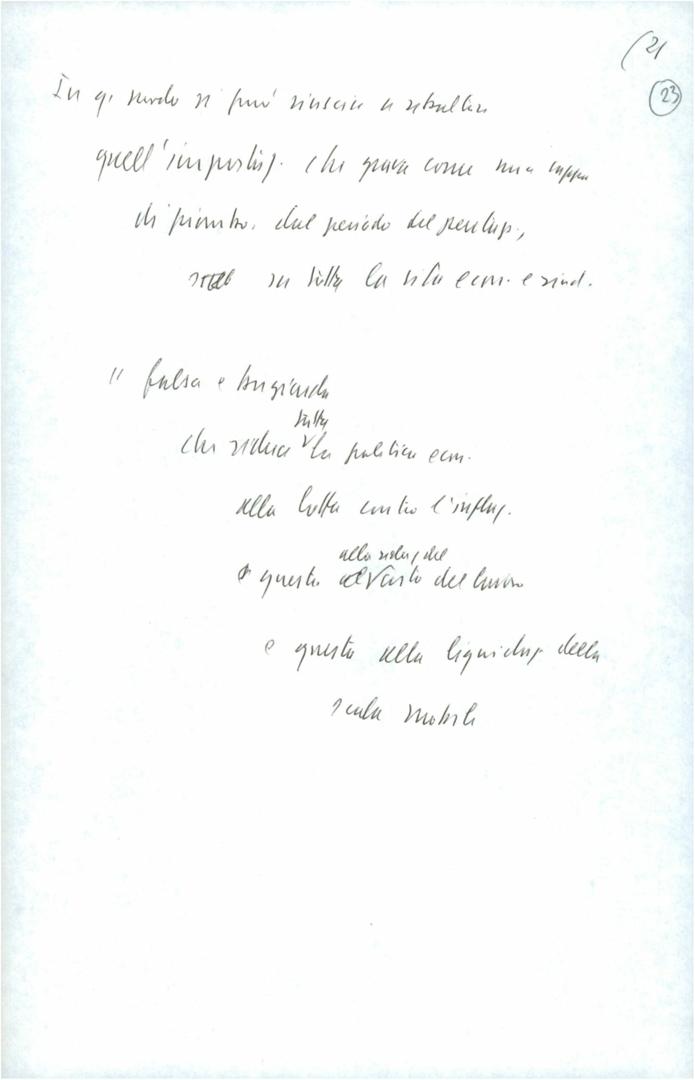 (21
23
In q. modo si può riuscire a ribaltare
quell'impostaz. che grava come una cappa
di piombo, dal periodo del pentap.,
su tutta la vita econ. e sind.
" falsa e bugiarda
tutta
che riduce la politica econ.
alla lotta contro l'inflaz.
alla riduz. del
e questa al costo del lavoro
e questa alla liquidaz. della
scala mobile